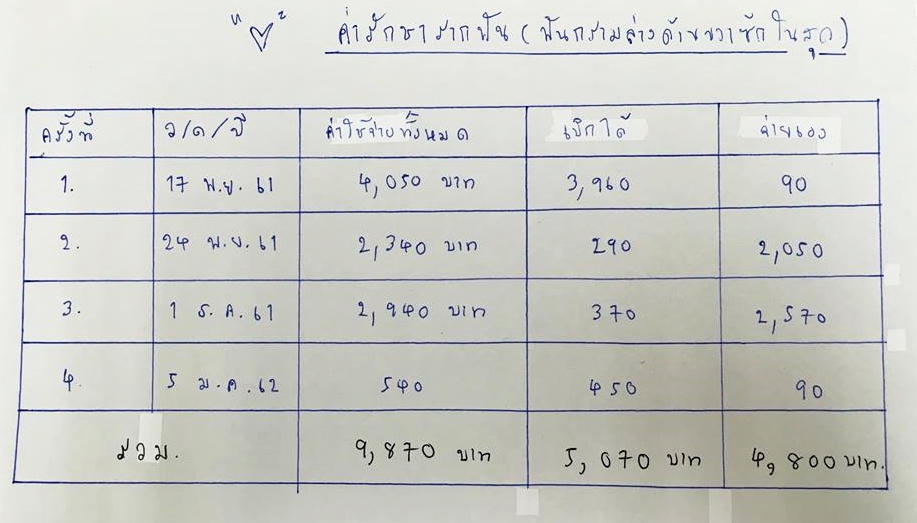 ค่ารักษารากฟัน (ฟันกรามล่างด้านขวาซี่ในสุด)
ครั้งที่ ว/ด/ปี ค่าใช้จ่ายทั้งหมด เบิกได้ จ่ายเอง
1. 17 พ.ย. 61 4,050 บาท 3,960 90
2. 24 พ.ย. 61 2,340 บาท 290 2,050
3. 1 ธ.ค. 61 2,940 บาท 370 2,570
4. 5 ม.ค. 62 540 450 90
รวม. 9,870 บาท 5,070 บาท 4,800 บาท.